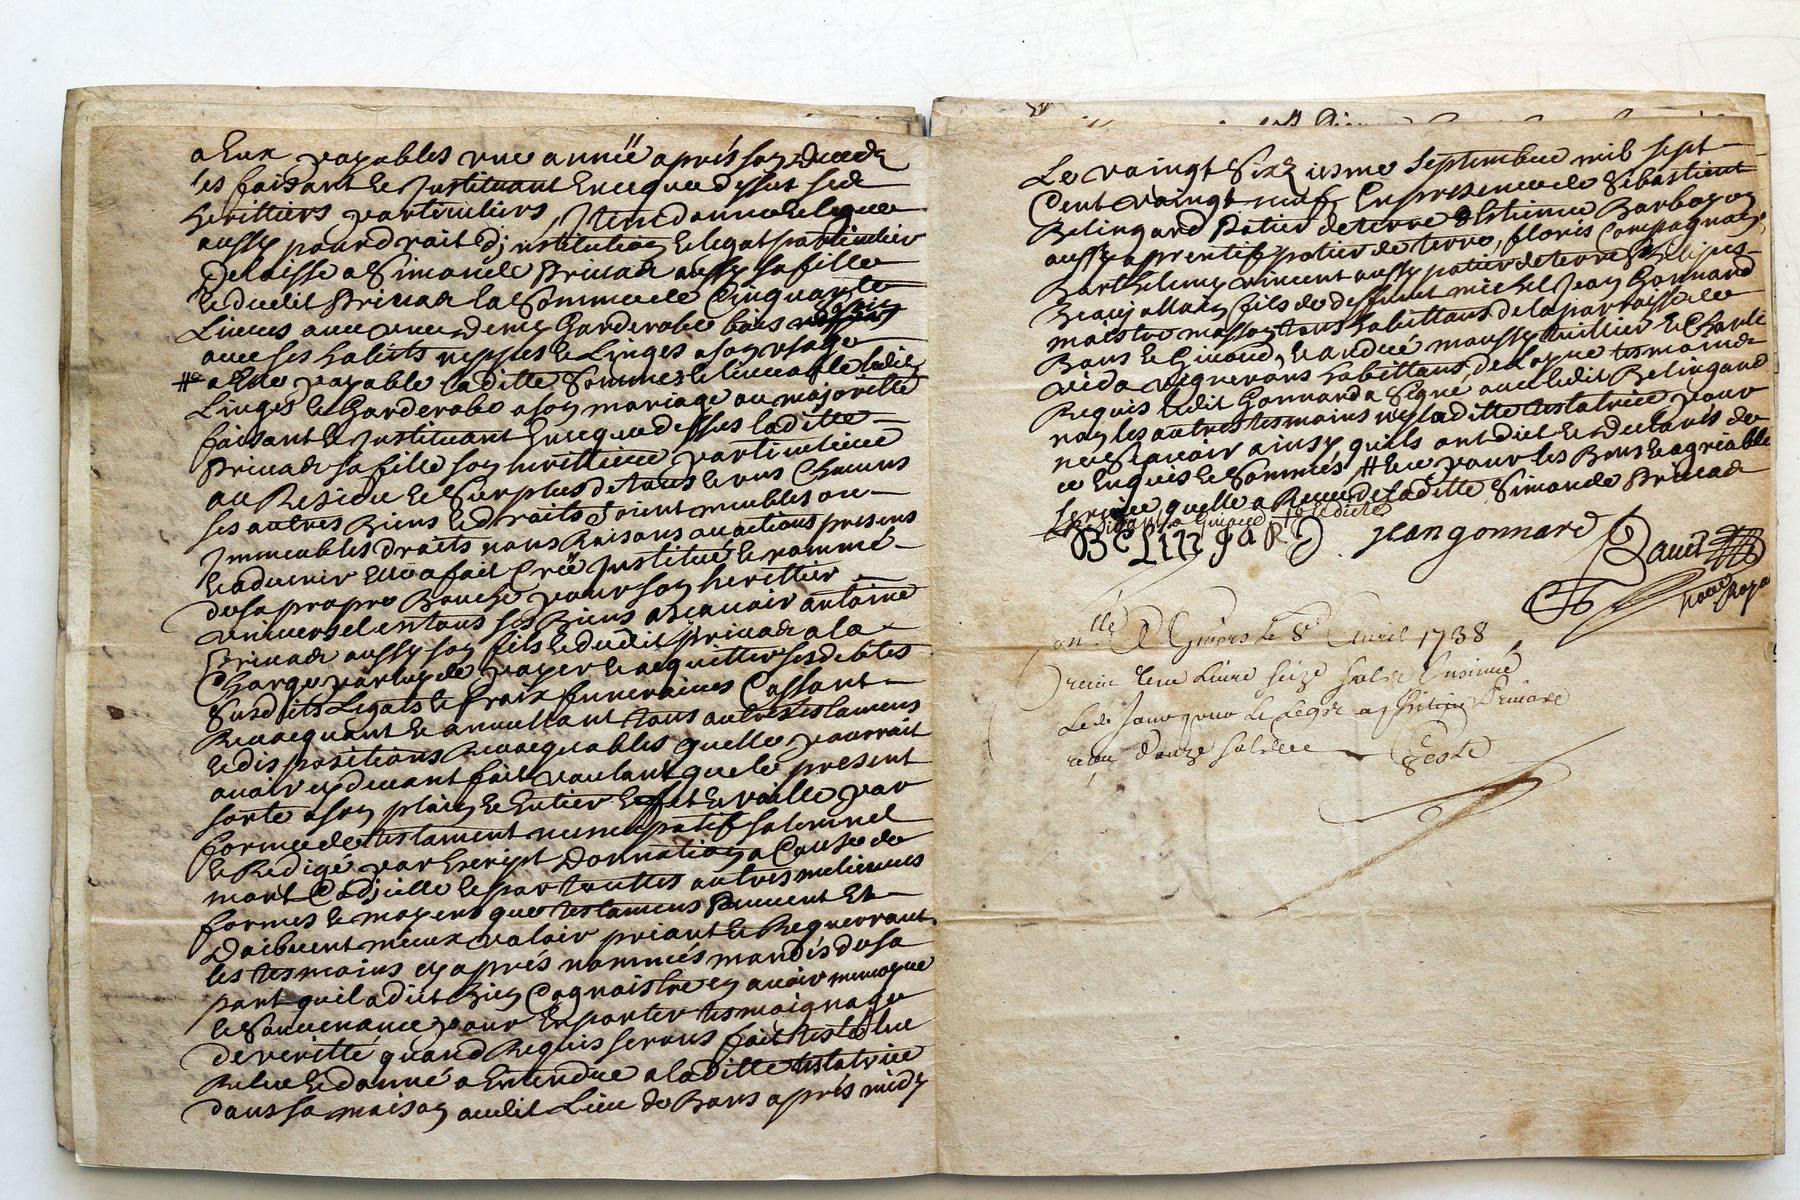 a Eux payables une anneë aprés son deceds
les faisant et Jnstituant En ce que dessus ses
herittiers particuliers, Jtem donne et legue
aussy pour droit d'jnstitution et legat particulier
Delaisse a Simonde Privade aussy sa fille
et dudit Privade la somme de Cinquante
Livres avec une demy Garderobe bois
avec ses habits nippes et Linges a son usage
a Elle payable laditte Somme
Linges et Garderobe a son mariage ou majoritté
faisant et Jnstituant En ce que dessus laditte
Privade sa fille son herittiere particuliere
au Residu et Surplus de tous et uns Chacuns
ses autres Biens et droits soient meubles ou
Jmmeubles droits noms Raisons ou actions presens
et advenir Elle a fait Creë Jnstitué et nommé
de sa propre Bouche pour son herittier
universel en tous ses Biens a sçavoir antoine
Privade aussy son fils et dudit Privade a la
Charge par luy de payer et acquitter ses debtes
Susdits Legats et fraix funeraires Cassant
Revocquant et annullant tous autres testamens
et dispositions Revocquables quelle pourroit
avoir cy devant fait voulant que le present
sorte a son plain et Entier Effet et vaille par
forme de testament nuncupatif solemnel
et Redigé par Escript Donnation a Cause de
mort Codjcille et par touttes autres meilieures
formes et moyens que testamens Peuvent Et
Doibvent mieux valoir priant et Requerrant
les tesmoins cy aprés nommés mandés de sa
part quil a dict Bien Cognoistre en avoir memoyre
et Souvenance pour En porter tesmoignage
de veritté quand Requis seront fait
Relue et donné a Entendre a laditte testatrice
dans sa maison audit Lieu de Bans aprés midy
Le vaingt Sixz iesme Septembre mil sept
Cent vaingt neuf En presence de Sebastient
Belingard Potier de terre Estienne Barbozon
aussy apprentif potier de terre, floris Compagnon
Barthelemy vincent aussy potier de terre
Beaujollain fils de deffunt michel Jean Gonnard
maistre masson tous habittans de la parroisse de
Bans et Givord, et andreé
vida vignerons habittans de tesmoins
Requis Ledit Gonnard a Signé avec ledit Belingard
non les autres tesmoins ny laditte testatrice pour
ne Sçavoir ainsy quils ont dict et declarés de
ce Enquis et Sommés
quelle a Receu de laditte Simonde Privade
BELINGARD jean gonnard
nore Royal
onlle A Givors le 8e avril 1738
receu une Livre seize sols
Led.
receu douze sols